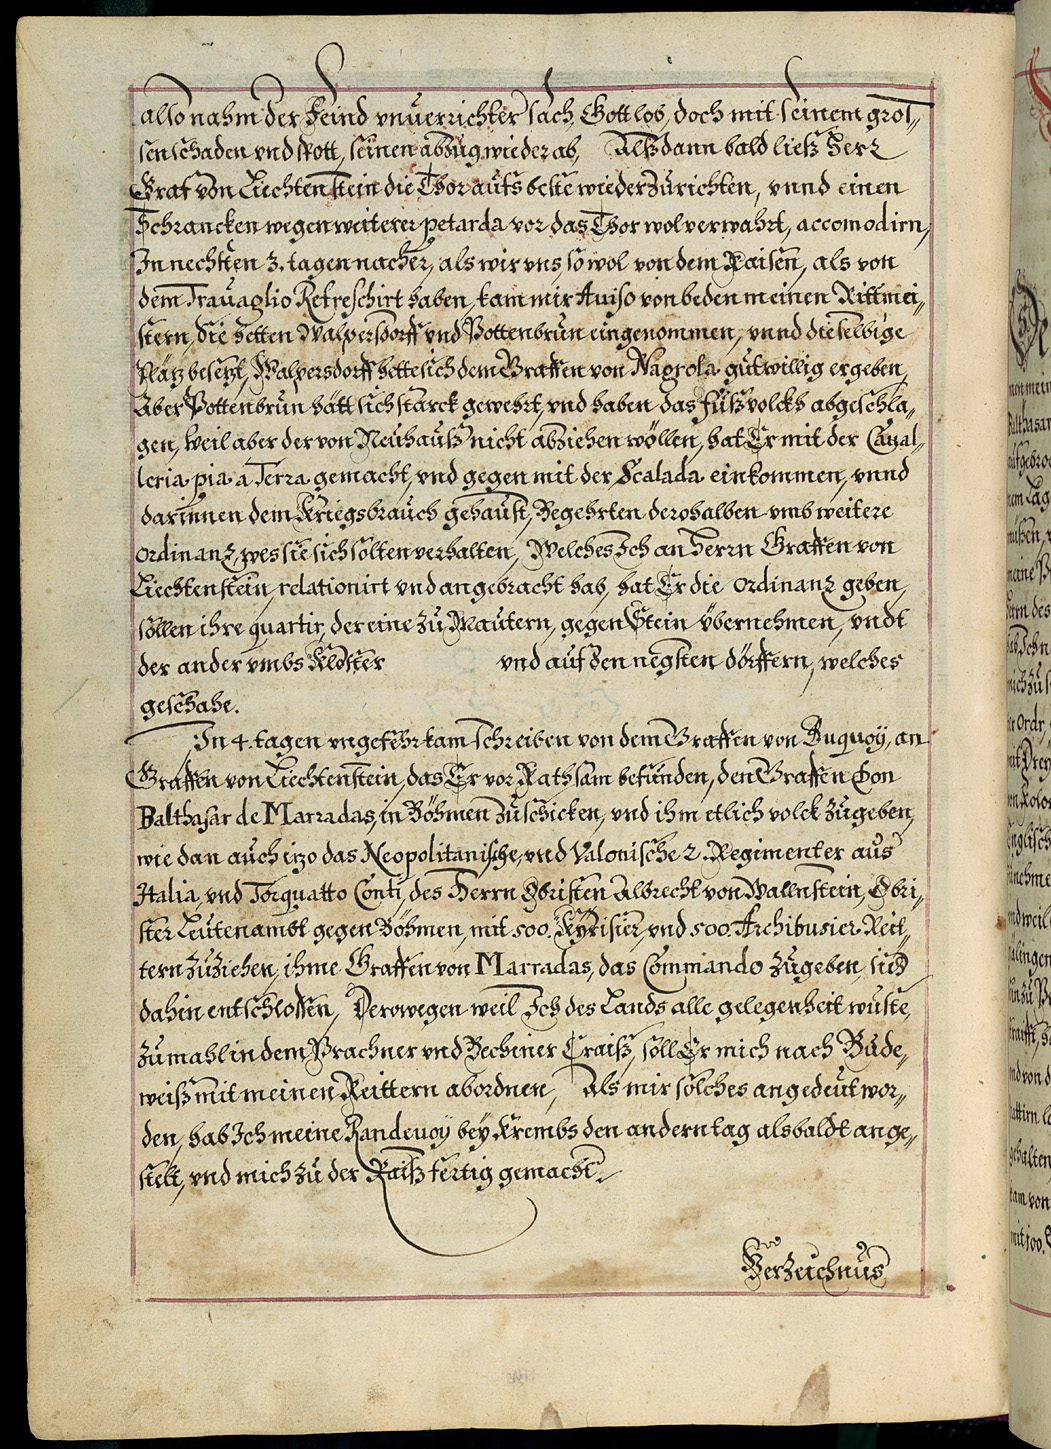 also nahm der Feind vnuerrichter sach, Gott lob, doch mit seinem gros„
sen schaden vnd spott, seinen abzug wieder ab, Alßdann bald ließ Herr
Graf von Liechtenstein die Thor aufs beste wieder zürichten, vnnd einen
Schrancken wegen weiterer petarda vor das Thor wol verwahrt, accomodirn,
In nechsten 3. tagen nacher, als wir vns, so wol von dem Raisen, als von
dem Trauaglio Refreschirt haben, kam mir Auiso von beden meinen Rittmei„
stern, Sie hetten Walpersdorff vnd Pottenbrun eingenommen, vnnd dieselbige
Plätz besetzt, Walpersdorff hette sich dem Graffen von Nagrola gutwillig ergeben,
Aber Pottenbrün hätt sich starck gewehrt, vnd haben das füßvolckh abgeschla„
gen, Weil aber der von Neuhauß nicht abziehen wöllen, hat Er mit der Caual„
leria pia a Terra gemacht, vnd gegen mit der Scalada einkommen, vnnd
darinnen dem Kriegsbrauch gehaust, Begehrten derohalben vmb weitere
ordinanz, wes sie sich solten verhalten, Welches Ich an Herrn Graffen von
Liechtenstein, relationirt vnd angebracht hab, hat Er die ordinanz geben,
söllen ihre quartir, der eine zu Mautern, gegen Stein übernehmen, vndt
der ander vmbs Kloster vnd auf den negsten dörffern, welches
geschahe.
In 4. tagen vngefehr kam schreiben von dem Graffen von Buquoy, an
Graffen von Liechtenstein, das Er vor Rathsam befunden, den Graffen Don
Balthasar de Marradas, in Böhmen zu schicken, vnd ihm etlich volck zugeben,
wie dan auch izo das Neopolitanische, vnd Valonische 2. Regimenter aus
Italia, vnd Torquatto Conti, des Herrn Obristen Albrecht von Wallnstein, Obri„
ster Leutenambt gegen Böhmen, mit 500. Kyrisier, vnd 500. Archibusier Reit„
tern zuziehen, ihme Graffen von Marradas, das Commando zugeben, sich
dahin entschlossen, Derowegen weil Ich des Lands alle gelegenheit wuste,
zumahl in dem Prachner vnd Bechiner Craiß, soll Er mich nach Bude„
weiß mit meinen Reittern abordnen, Als mir solches angedeut wor„
den, hab Ich meine Randeuoy bey Krembs den andern tag alsbaldt ange„
stelt, vnd mich zu der Raiß fertig gemacht.
Verzeichnus